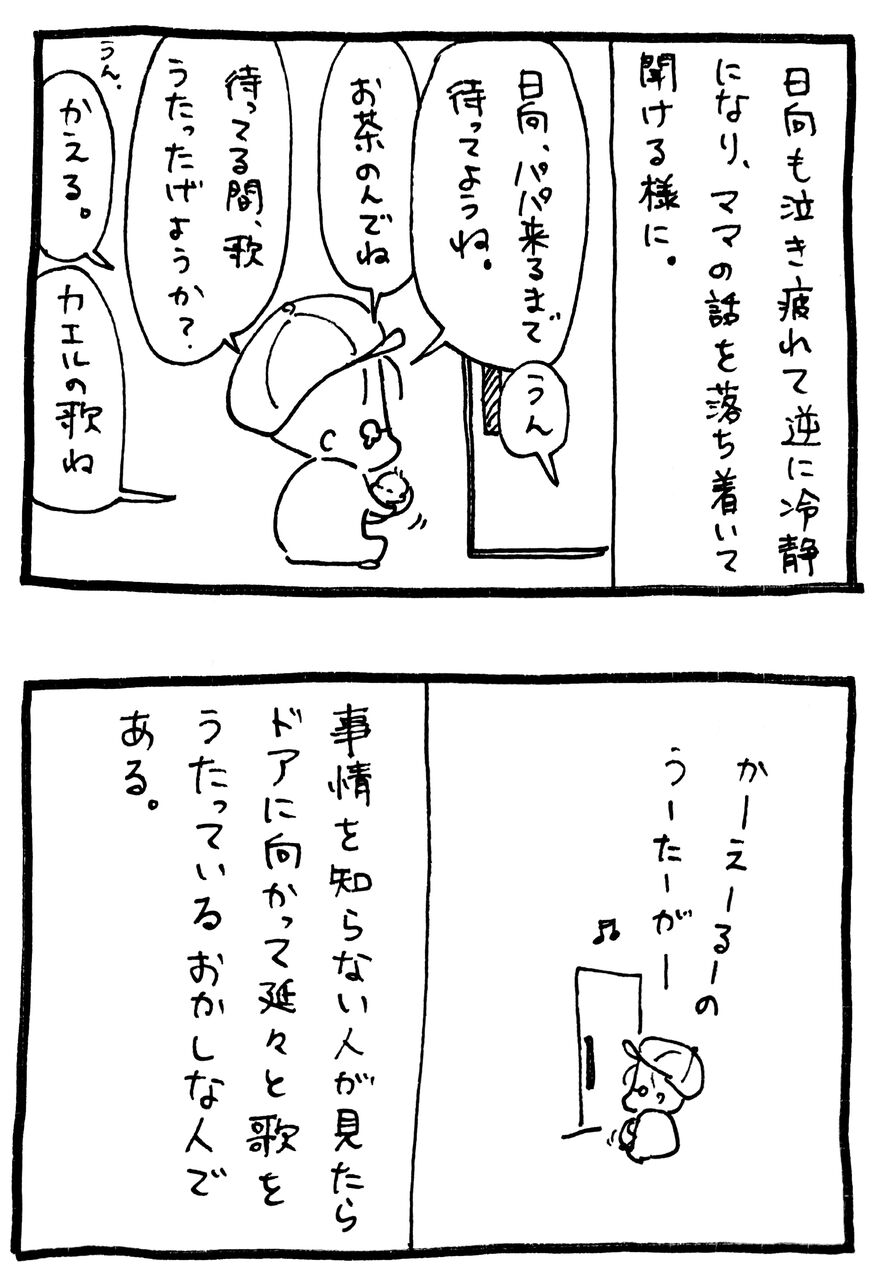 日向も泣き疲れて逆に冷静
になり、ママの話を落ち着いて
聞ける様に。
日向、パパ来るまで
待ってようね。
うん
お茶のんでね
待ってる間、歌
うたったげようか？
うん。
かえる。
カエルの歌ね
かーえーるーの
うーたーがー
事情を知らない人が見たら
ドアに向かって延々と歌を
うたっているおかしな人で
ある。